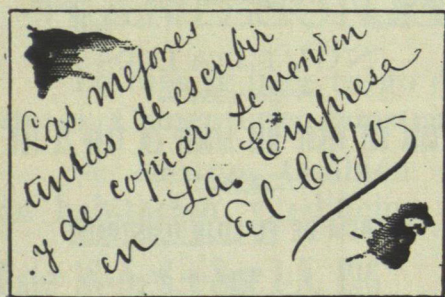 Las mejores
tintas de escribir
y de copiar se venden
en La Empresa
El Cojo